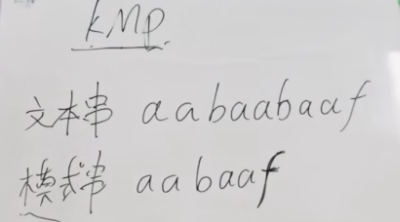 KMP
文本串 aabaabaaf
模式串 aabaaf